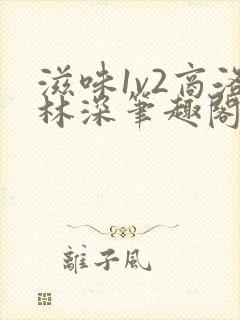 滋味1v2高洛
林深笔趣阁
離子风